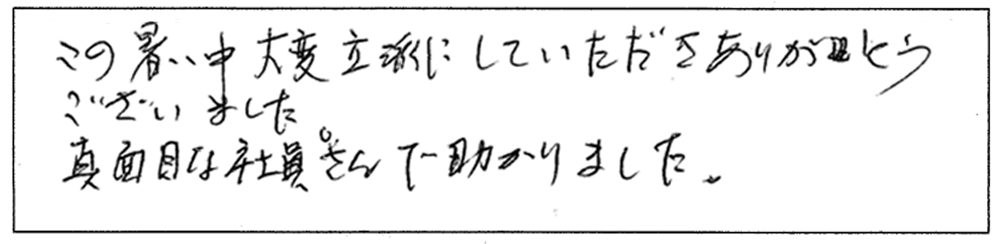 この暑い中大変立派にしていただきありがとう
ございました
真面目な社員さんで助かりました。